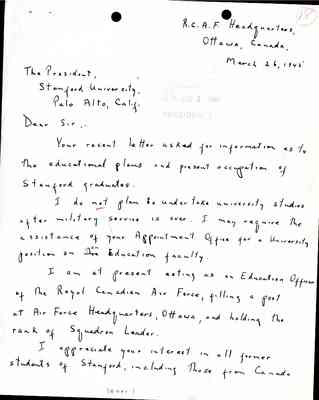 R.C.A.F. Headquarters,
Ottawa, Canada.
March 26, 1945
The President,
Stanford University,
Palo Alto, Calif.
Dear Sir,
Your recent letter asked for information as to
the educational plans and present occupation of
Stanford graduates.
I do not plan to undertake university studies
after military service is over. I may require the
assistance of your Appointment Office for a University
position on Education faculty.
I am at present acting as an Education Officer
of the Royal Canadian Air Force, filling a post
at Air Force Headquarters, Ottawa, and holding the
rank of Squadron Leader.
I appreciate your interest in all former
students of Stanford, including those from Canada
(over)